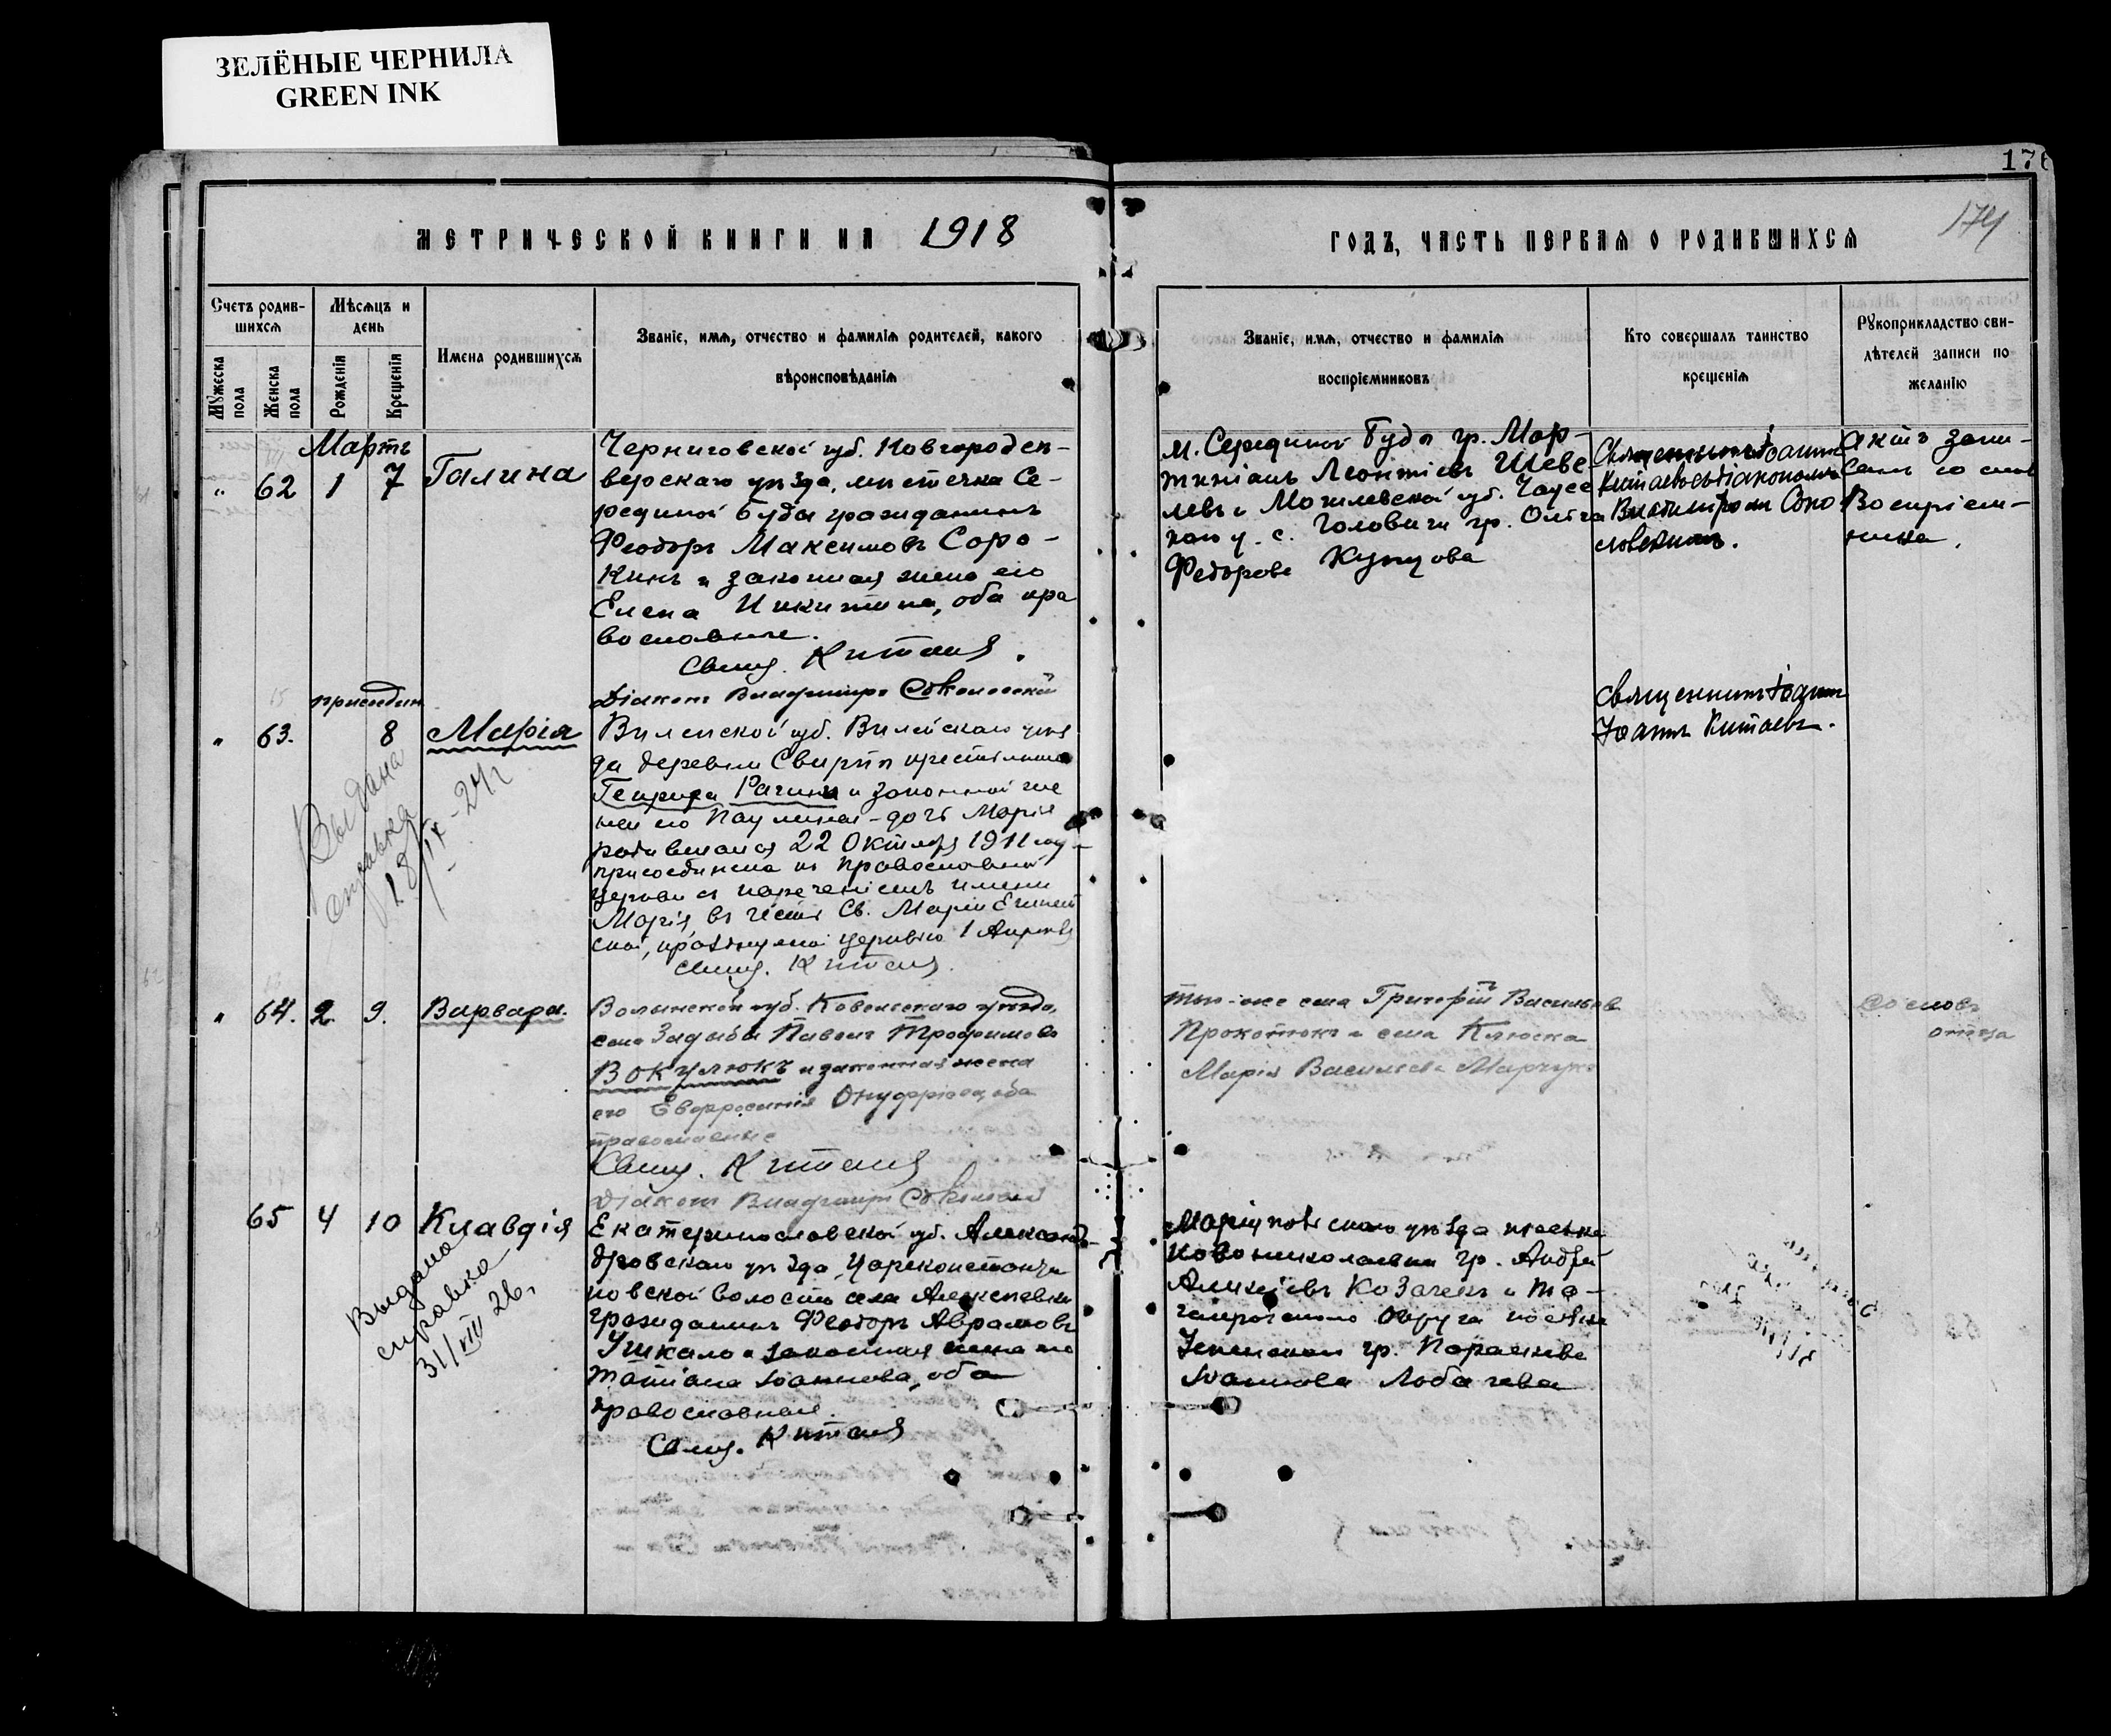 ЗЕЛЁНЫЕ ЧЕРНИЛА
GREEN INK
176
174
МЕТРИЧЕСКОЙ КНИГИ НА 1918
ГОДЪ, ЧАСТЬ ПЕРВАЯ О РОДИВШИХСЯ
Счетъ родив-
шихся
Мѣсяцъ и
день
Мужеска
пола
Женска
пола
Рожденія
Крещенія
Имена родившихся
Званіе, имя, отчество и фамилія родителей, какого
вѣроисповѣданія
Званіе, имя, отчество и фамилія
воспріемниковъ
Кто совершалъ таинство
крещенія
Рукоприкладство сви-
дѣтелей записи по
желанію
Мартъ
" 62 1 7 Галина
Черниговской губ. Новгородсѣ-
верскаго уѣзда, мѣстечка Се-
рединой Буды гражданинъ
Феодоръ Максимовъ Соро-
кинъ и законная жена его
Елена Никитина, оба пра
вославные.
Свящ. Китаевъ
м. Середины Буды гр. Мар-
тиніанъ Леонтіевъ Шеве-
левъ и Могилевской губ. Чаусс
каго у. с. Головичи гр. Ольга
Федорова Купцова
Священникъ Іоаннъ
Китаевъ съ діакономъ
Владиміромъ Соко
ловскимъ.
Актъ запи-
санъ со словъ
Воспріем-
ника.
Діаконъ Владиміръ Соколовскій
присоедин
" 63. 8 Марія
Виленской губ. Вилейскаго уѣз
да деревни Свирты крестьянина
Генриха Рачина и законной же
ны его Паулины - дочь Марія
родившаяся 22 Октября 1911 году
присоединена къ православной
Церкви съ нареченіемъ имени
Марія, въ честь Св. Маріи Египет
ской, празднуемой церковью 1 Апрѣля
Свящ. Китаевъ
Священникъ Іоаннъ
Іоаннъ Китаевъ.
Выдана
справка
18/IX-24г
" 64. 2. 9. Варвара.
Волынской губ. Ковельскаго уѣзда,
села Задыбы Павелъ Трофимовъ
Вокулюкъ и законная жена
его Евфросинія Онуфріева, оба
православные
Свящ. Китаевъ
Діаконъ Владиміръ Соколовскій
того-же села Григорій Васильевъ
Прокопюкъ и села Клюска
Марія Васильева Марчукъ
Со словъ
отца
65 4 10 Клавдія
Екатеринославской губ. Александ-
дровскаго уѣзда, Цареконстанти
новской волости села Алексѣевки
гражданинъ Феодоръ Аврамовъ
Ушкало и законная жена его
Татіана Іоаннова, оба
православные.
Свящ. Китаевъ
Маріупольскаго уѣзда поселка
Ново николаевки гр. Андрей
Алексѣевъ Козаченъ и Та-
ганрогскаго Округа поселка
Успенскаго гр. Параскева
Іванова Лобачева
Выдана
справка
31/VIII 26.